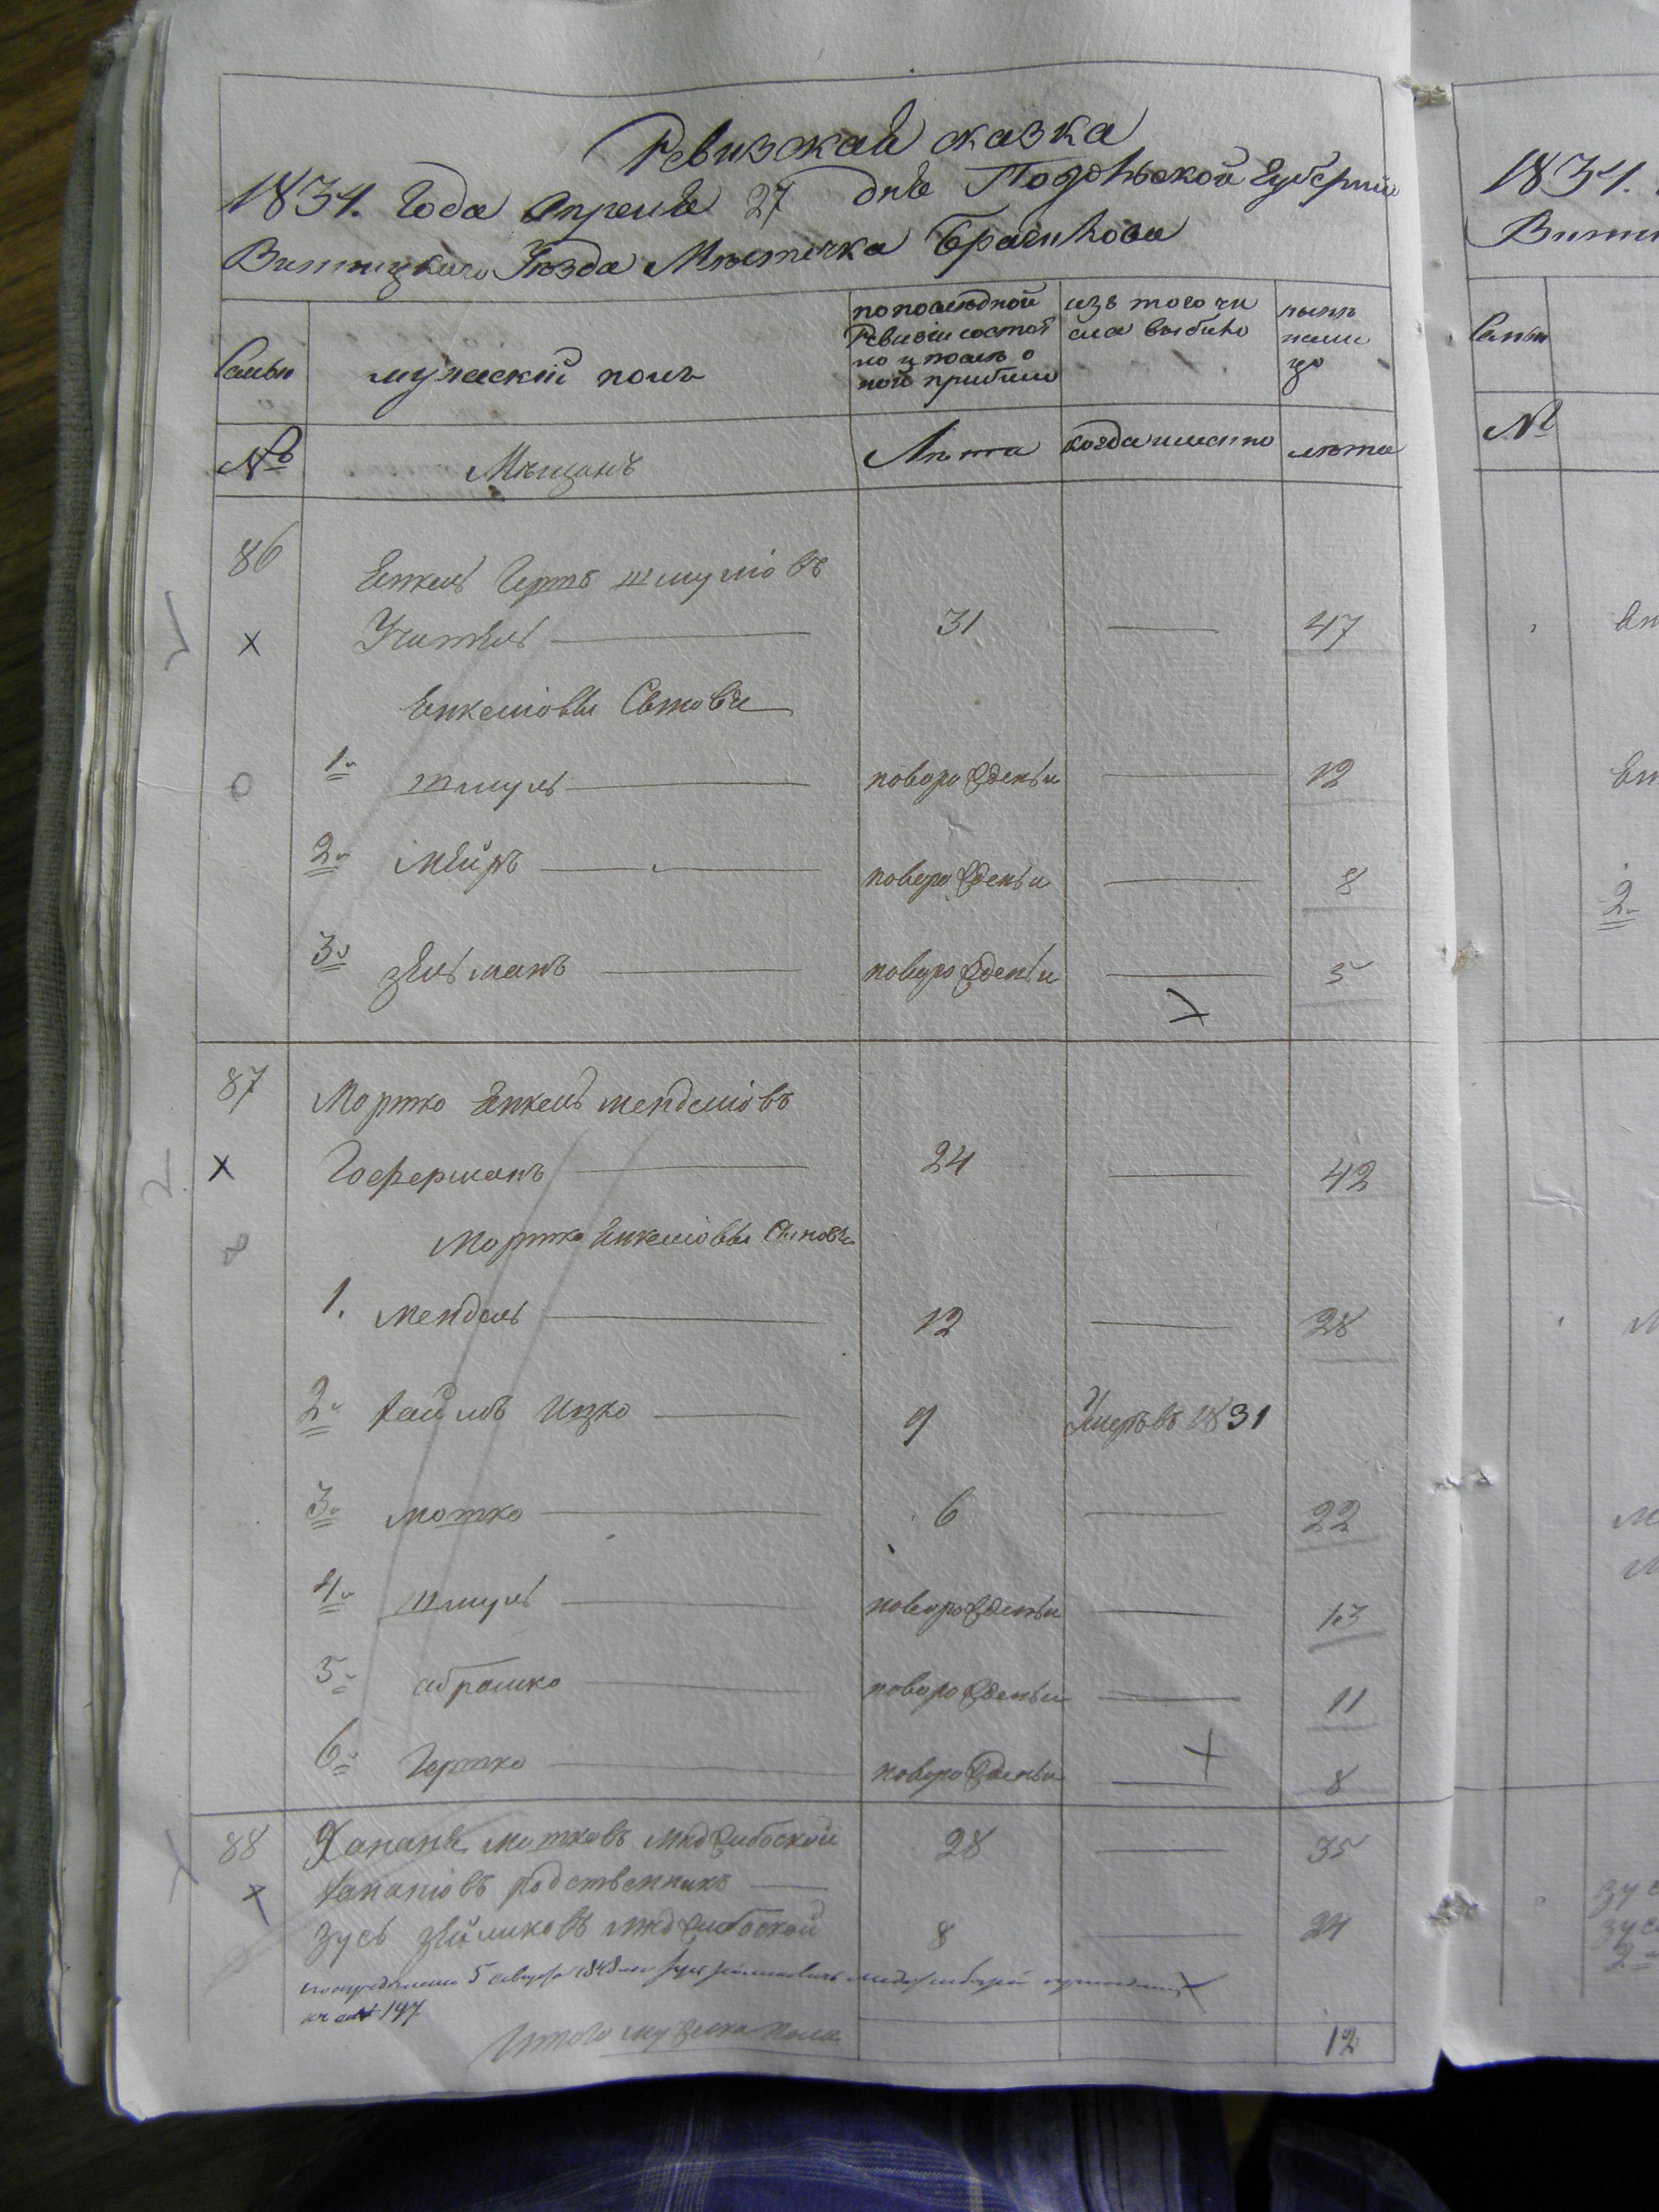 Ревизкая сказка
1834. Года Апреля 27 дня Подольской Губернии
Винницкаго Уезда Местечка Браилова
Семьи
мужескій полъ
по последной
Ревизіи состоя
ло и после о
ной прибыло
изъ того чи
сла выбыло
ныне
нали
цо
№
Мещанъ
Лета
когда именно
лета
86
Енкель Гершъ Шмуліовъ
Учитель
31
47
Енкеліовы Сыновья
1й
Шмуль
новорожденъи
12
2й
Мейръ
новорожденъи
8
3й
Зельманъ
новорожденъи
5
87
Мортко Енкель Менделіовъ
Гоферманъ
24
42
Мортка Енкеліовы Сыновья
1.
Мендель
12
28
2й
Хаимъ Ицко
9
Умеръ въ 1831
3й
Мошко
6
22
4й
Шмуль
новорожденъи
13
5й
Абрамко
новорожденъи
11
6й
Гершко
новорожденъи
8
88
Ханань Мошковъ Меджибоской
28
35
Хананіовъ родственникъ
Зусь Зейликовъ Меджибоской
8
24
5 1848
147
Итого мужеска пола
12
1834.
Винн
Семьи
№
2й